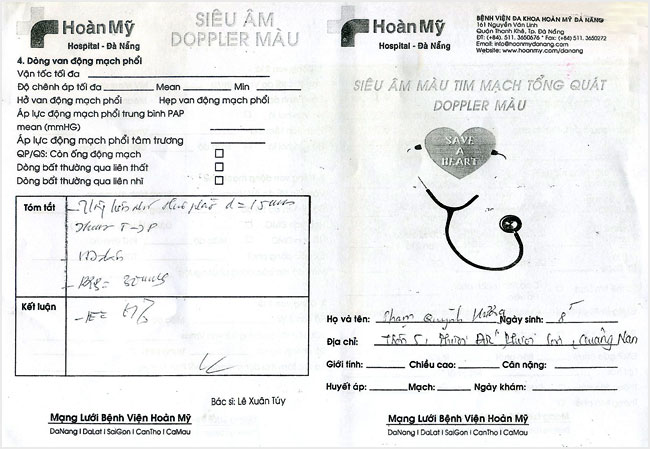 Hoàn Mỹ
Hospital - Đà Nẵng
SIÊU ÂM
DOPPLER MÀU
4. Dòng van động mạch phổi
Vận tốc tối đa
Độ chênh áp tối đa Mean Min
Hở van động mạch phổi Hẹp van động mạch phổi
Áp lực động mạch phổi trung bình PAP
mean (mmHG)
Áp lực động mạch phổi tâm trương
QP/QS: Còn ống động mạch
Dòng bất thường qua liên thất
Dòng bất thường qua liên nhĩ
Tóm tắt
d = 15 mm
T → P
Kết luận
Bác sĩ: Lê Xuân Túy
Mạng Lưới Bệnh Viện Hoàn Mỹ
DaNang I DaLat I SaiGon I CanTho I CaMau
Hoàn Mỹ
Hospital - Đà Nẵng
BỆNH VIỆN ĐA KHOA HOÀN MỸ ĐÀ NẴNG
161 Nguyễn Văn Linh
Quận Thanh Khê, Tp. Đà Nẵng
ĐT: (+84). 511. 3650676 * Fax: (+84) 511. 3650272
Email: info@hoanmydanang.com
Website: www.hoanmy.com/danang
SIÊU ÂM MÀU TIM MẠCH TỔNG QUÁT
DOPPLER MÀU
SAVE
A
HEART
Họ và tên: Phạm Quỳnh Hương Ngày sinh: 8T
Địa chỉ: Quảng Nam
Giới tính: Chiều cao: Cân nặng:
Huyết áp: Mạch: Ngày khám:
Mạng Lưới Bệnh Viện Hoàn Mỹ
DaNang I DaLat I SaiGon I CanTho I CaMau